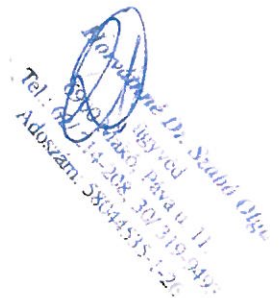 Horváthné Dr. Szabó Olga
ügyved
Makó, Páva u. 11
Tel.: 214-208, 30/319-949
Adószám: 58044535-1-26